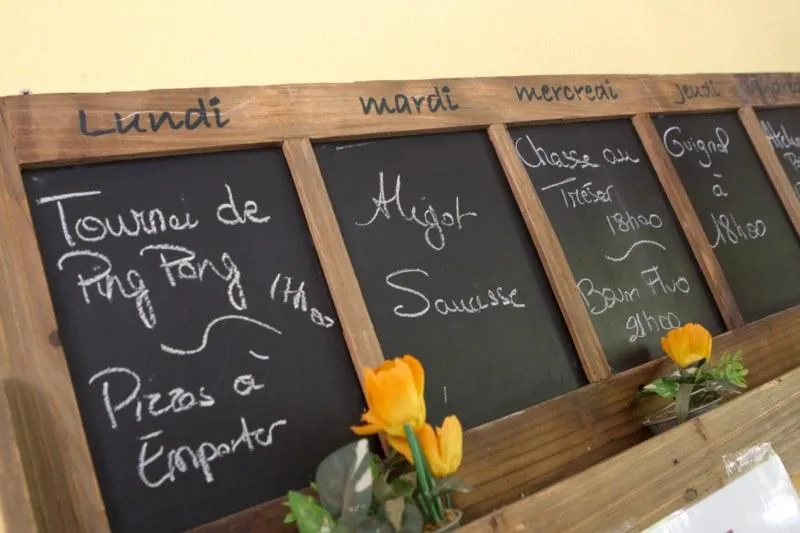 Lundi
Tournoi de
Ping Pong 17h00
Pizzas à
Emporter
mardi
Aligot
Saucisse
mercredi
Chasse au
Trésor
18h00
Boum Fluo
21h00
jeudi
Guignol
à
18h00
Vendredi